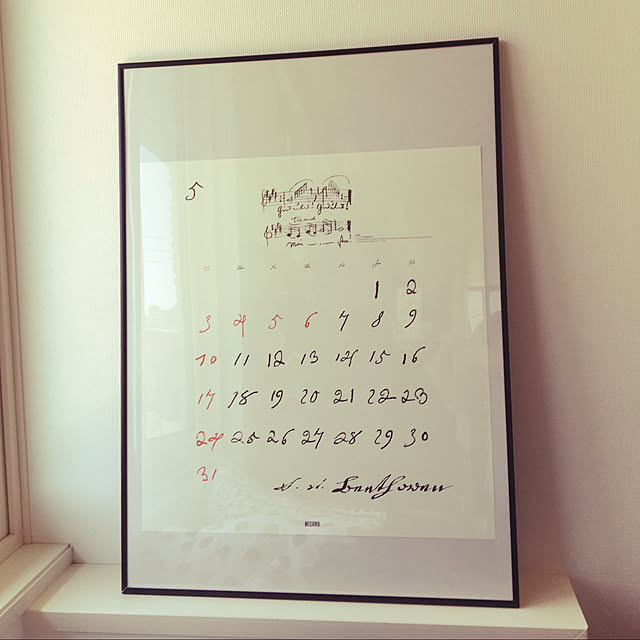 5
1 2
3 4 5 6 7 8 9
10 11 12 13 14 15 16
17 18 19 20 21 22 23
24 25 26 27 28 29 30
31
Beethoven
MISAWA